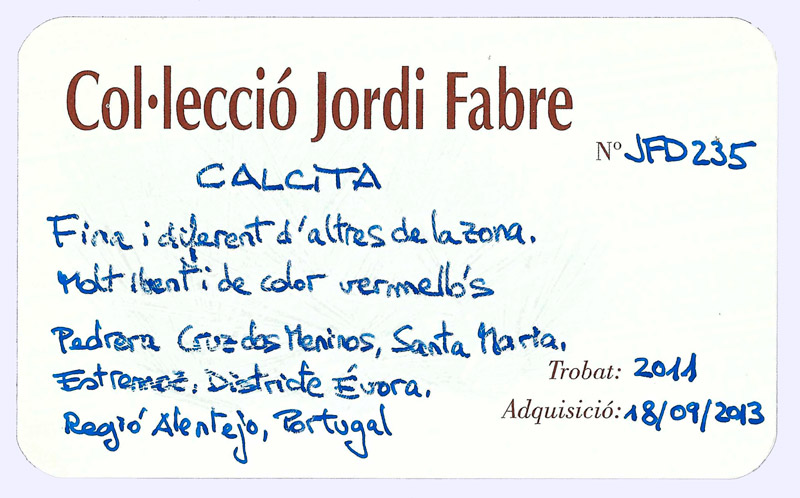 Col·lecció Jordi Fabre
Nº JFD235
CALCITA
Fina i diferent d'altres de la zona.
Molt lluent i de color vermellós
Pedrera Cruz dos Meninos, Santa Maria.
Estremoz, Districte Évora.
Trobat: 2011
Regió Alentejo, Portugal
Adquisició: 18/09/2013